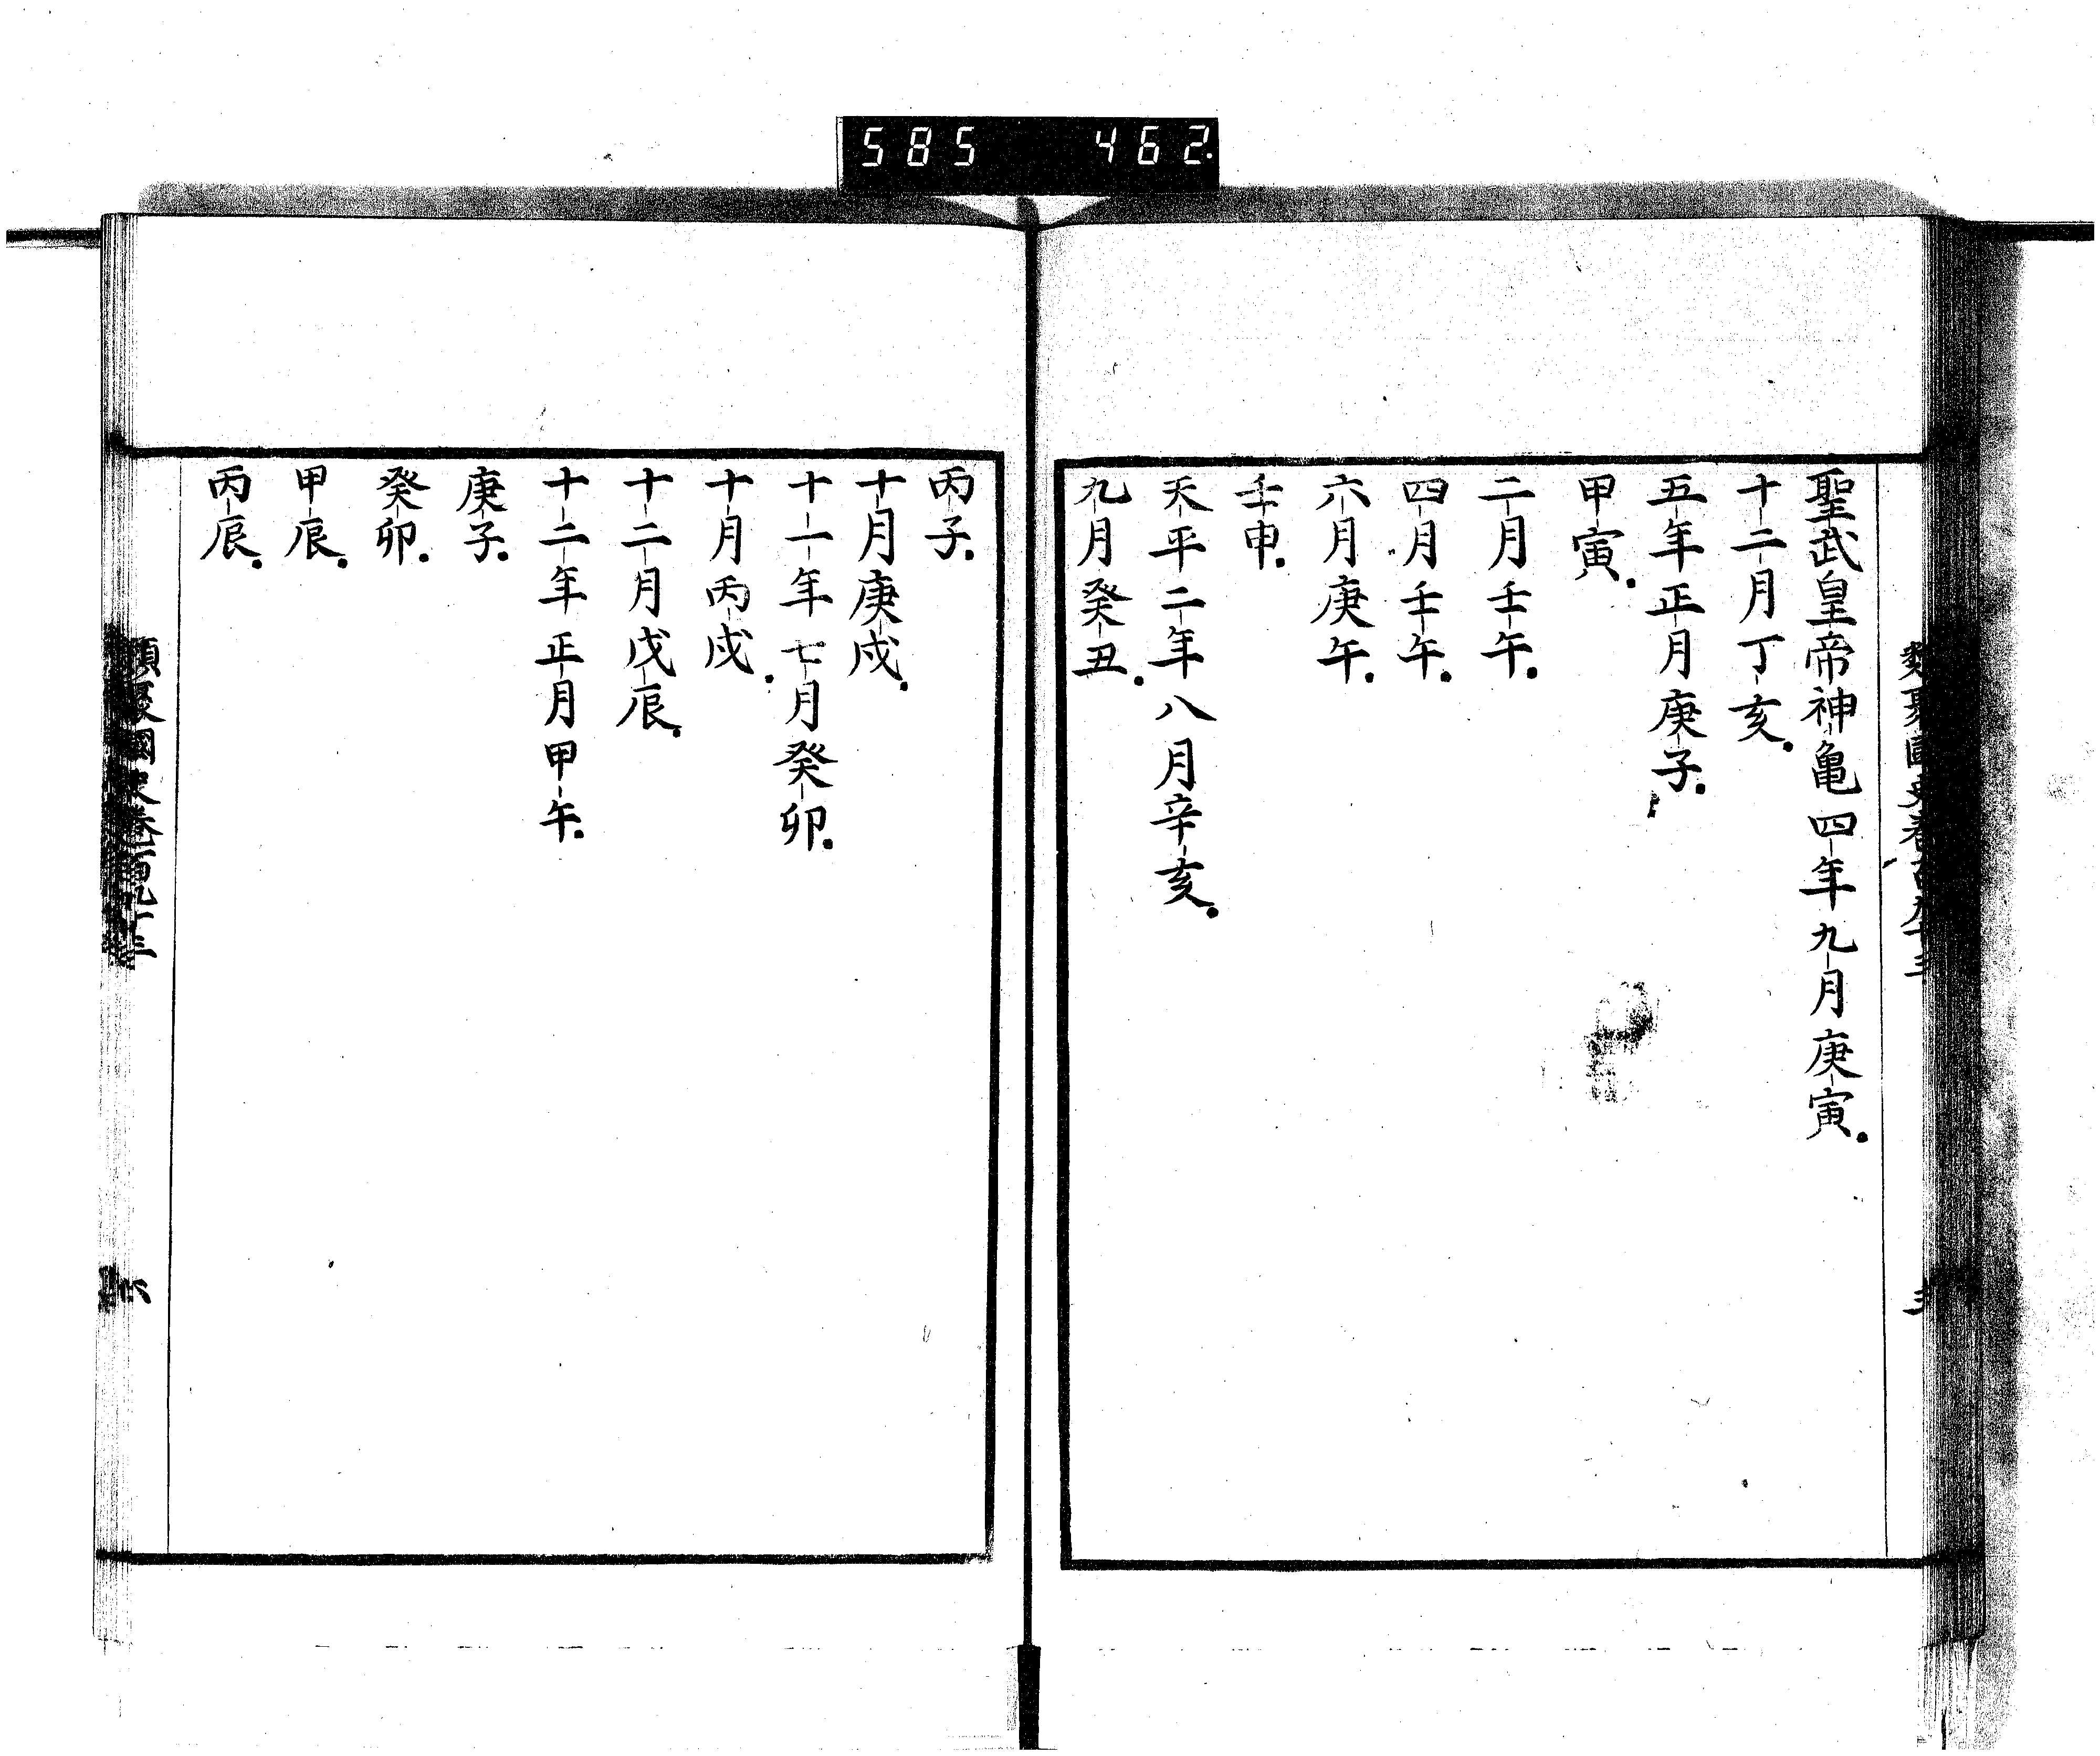 585 462.
聖武皇帝神亀四年九月庚寅.
十二月丁亥.
五年正月庚子.
甲寅.
二月壬午.
四月壬午.
六月庚午.
壬申.
天平二年八月辛亥.
九月癸丑.
丙子.
十月庚戌.
十一年七月癸卯.
十月丙戌.
十二月戊辰.
十二年正月甲午.
庚子.
癸卯.
甲辰.
丙辰.
類聚國史卷百九十三